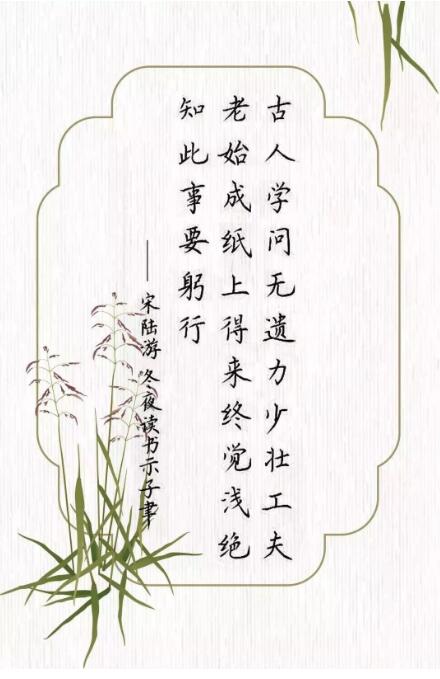 古人学问无遗力少壮工夫
老始成纸上得来终觉浅绝
知此事要躬行
——宋陆游冬夜读书示子聿